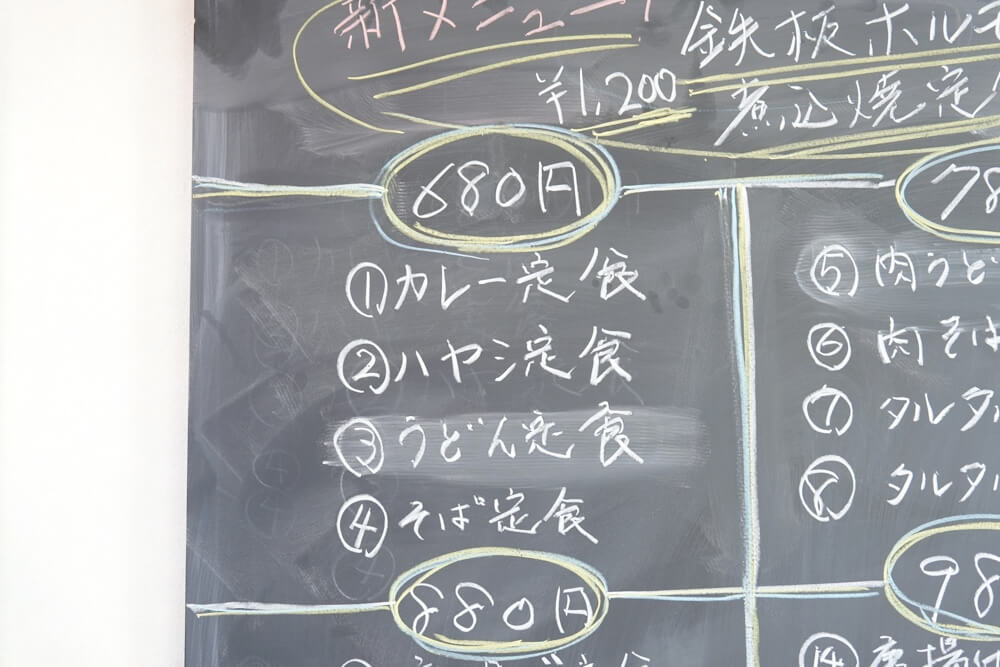 新メニュー
鉄板ホルモ
¥1,200
煮込焼定食
680円
①カレー定食
②ハヤシ定食
③うどん定食
④そば定食
78
⑤肉うど
⑥肉そば
⑦タルタル
⑧タルタル
880円
98
⑭